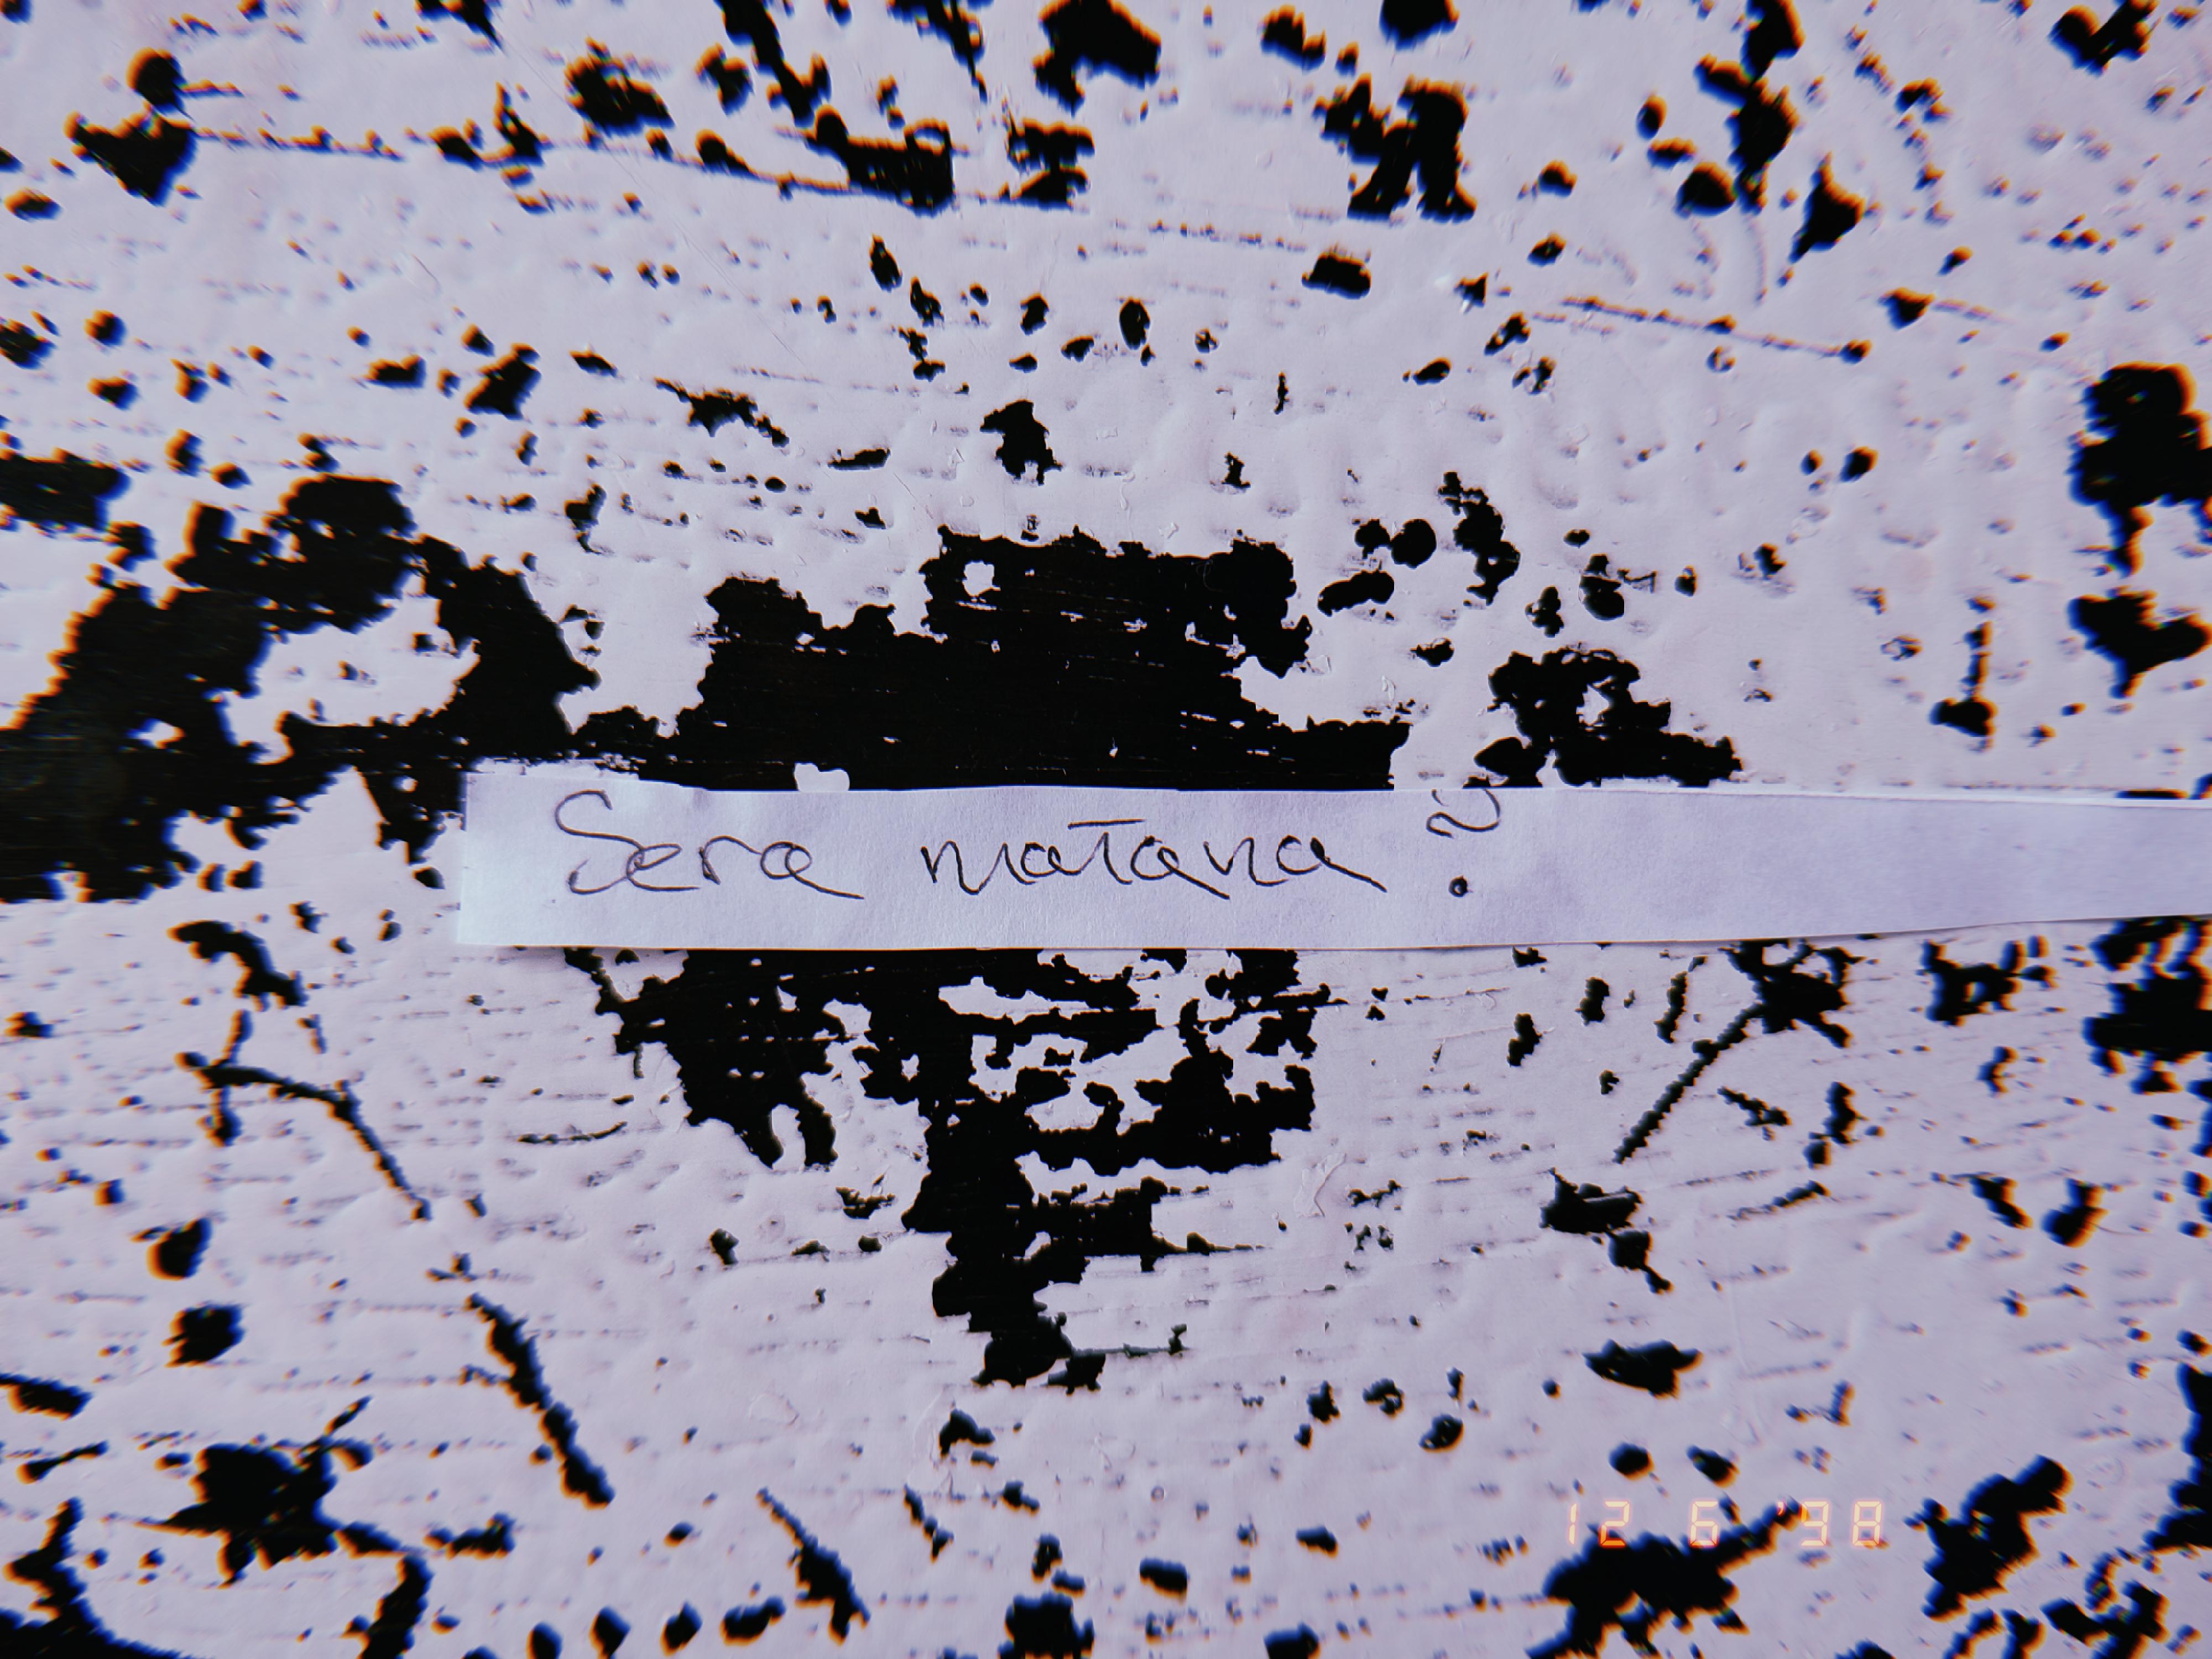 Sera matana?
12 6 '98